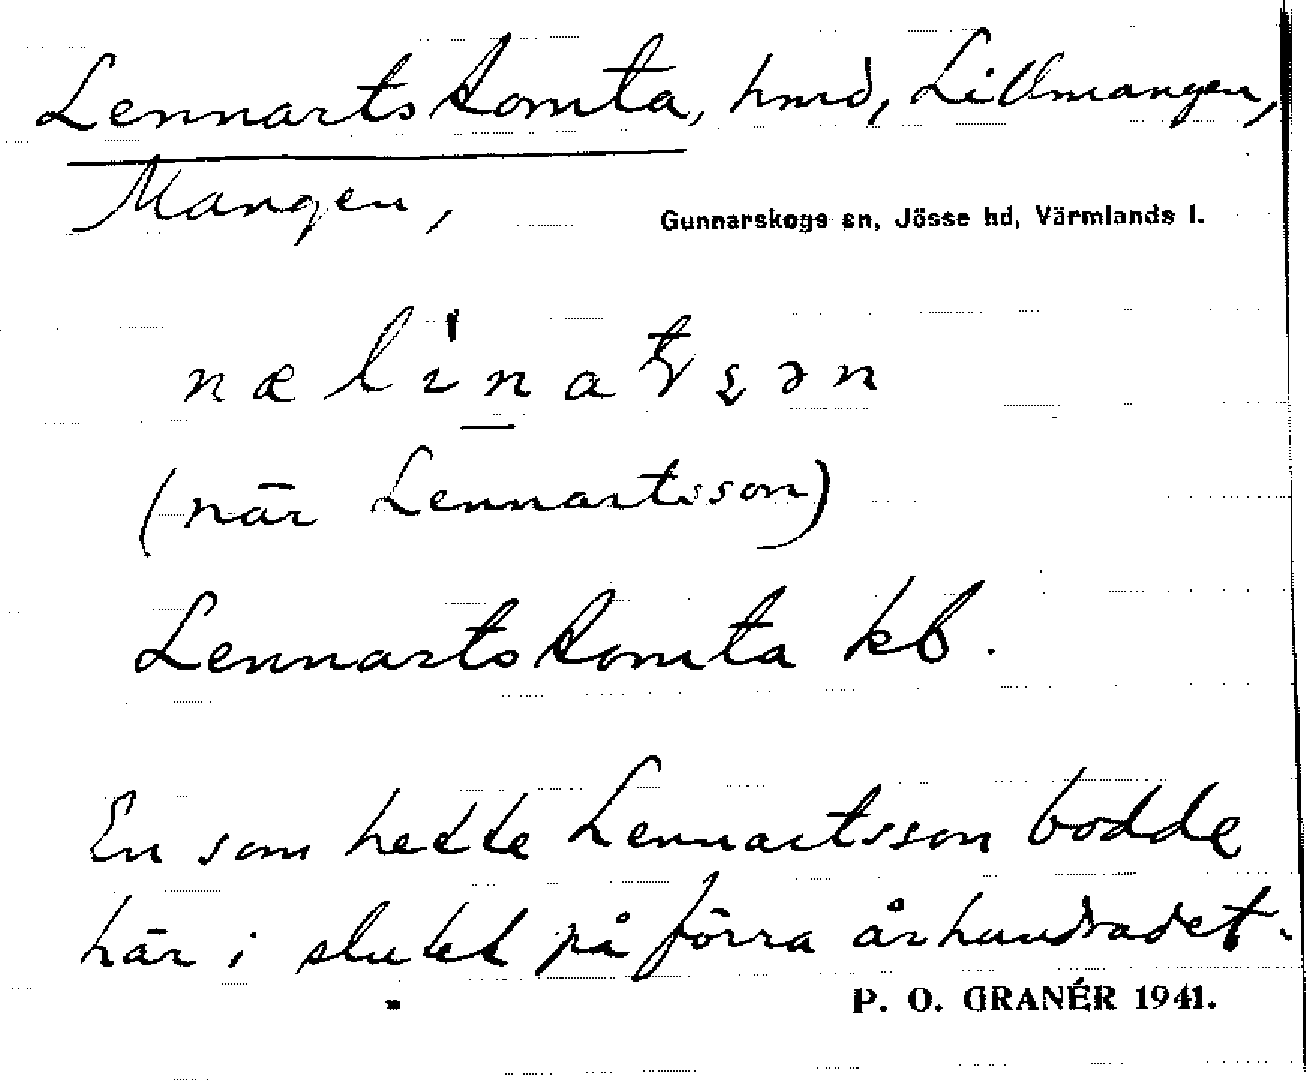 Lennartstomta, hmd, Lillmangen,
Mangen,
Gunnarskogs sn, Jösse hd, Värmlands l.
(när Lennartsson)
Lennartstomta kb.
En som hette Lennartsson bodde
här i slutet på förra århundradet.
P. O. GRANÉR 1941.